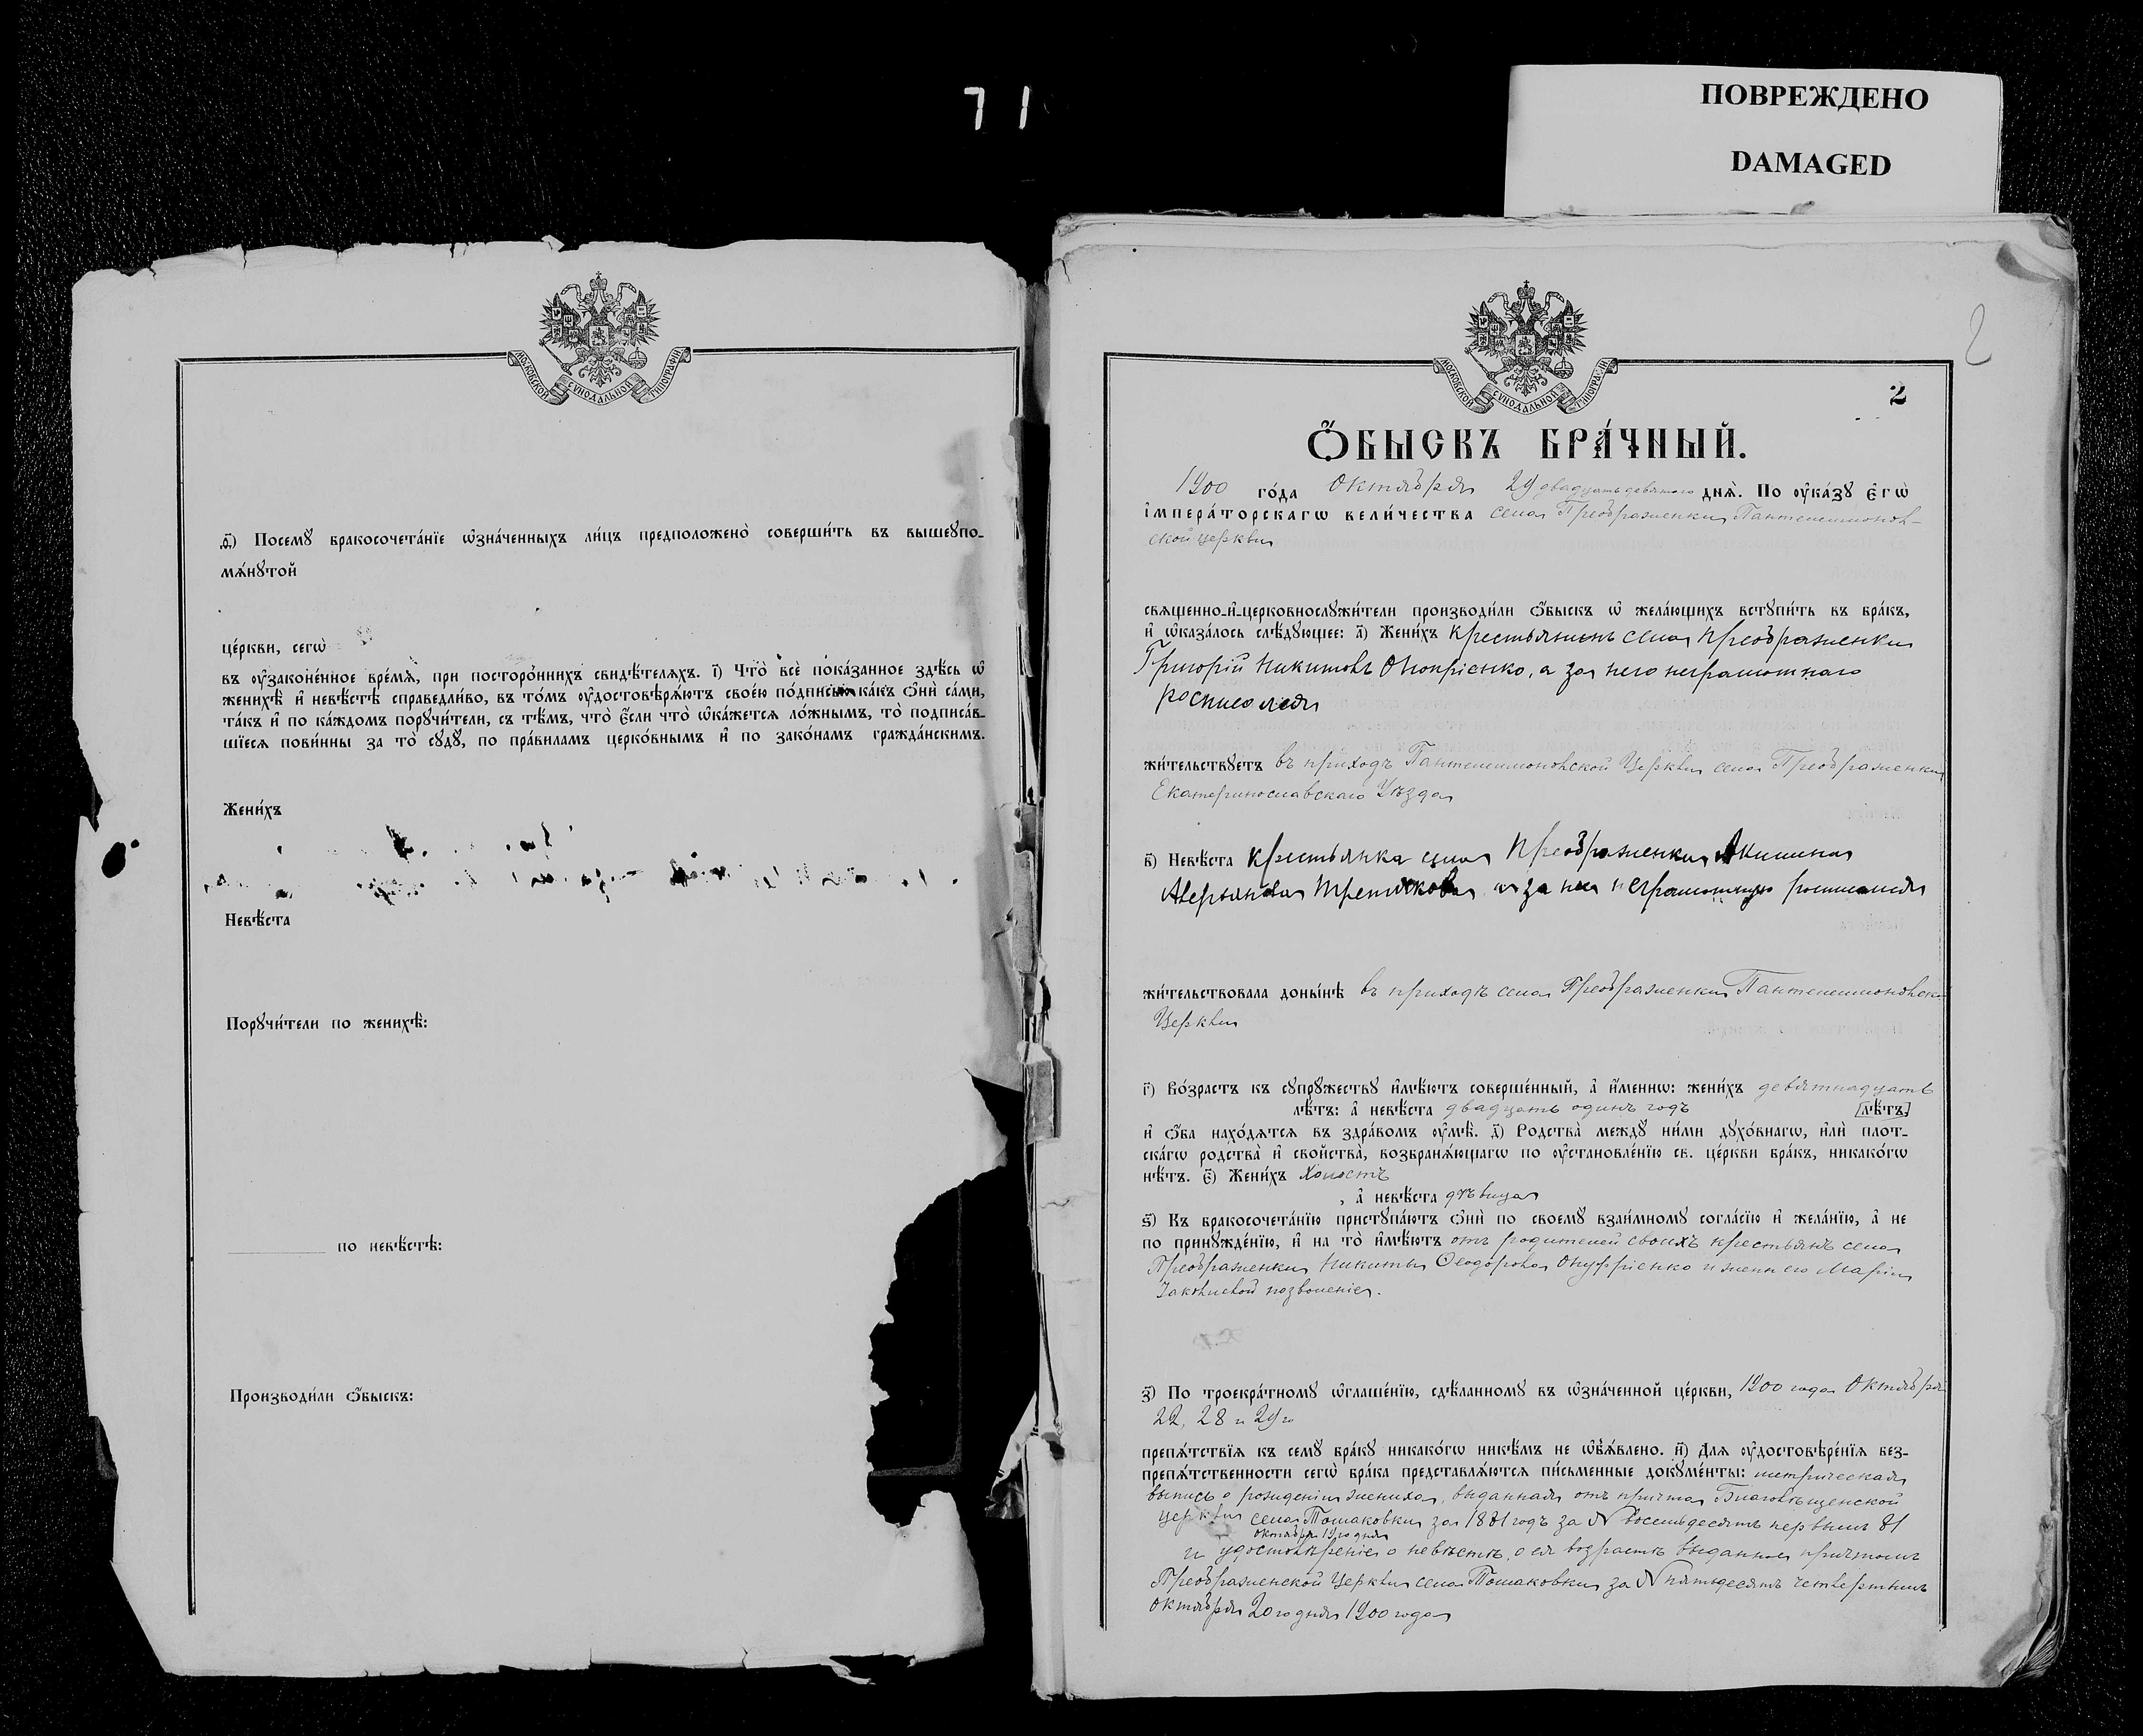 71
ПОВРЕЖДЕНО
DAMAGED
МОСКОВСКОЙ СѴНОДАЛЬНОЙ ТИПОГРАФІИ
ѳ҃) Посемꙋ бракосочета́нїе ѡзна́ченныхъ ли́цъ предположено̀ соверши́ть въ вышеꙋпо-
мѧ́нꙋтой
це́ркви, сегѡ̀
въ ᲂу҆зако́ненное вре́мѧ, при посторо́ннихъ свидѣ́телѧхъ. і҃) Что̀ всѐ пока́занное здѣ́сь ѡ҆
женихѣ̀ и҆ невѣ́стѣ справедли́во, въ то́мъ ᲂу҆достовѣрѧ́ютъ свое́ю по́дписью ка́къ ѻ҆нѝ са́ми,
та́къ и҆ по ка́ждомъ порꙋчи́тели, съ тѣ́мъ, что̀ є҆́сли что̀ ѡ҆ка́жетсѧ ло́жнымъ, то̀ подписа́в-
шїесѧ пови́нны за то̀ сꙋдꙋ̀, по пра́виламъ церко́внымъ и҆ по зако́намъ гражда́нскимъ.
Жени́хъ
Невѣ́ста
Порꙋчи́тели по женихѣ̀:
по невѣ́стѣ:
Производи́ли ѻ҆́быскъ:
2
МОСКОВСКОЙ СѴНОДАЛЬНОЙ ТИПОГРАФІИ
2
Ѻ҆́БЫСКЪ БРА́ЧНЫЙ.
1900 го́да Октября 29 двадцать девятого днѧ̀. По ᲂу҆ка́зꙋ Є҆гѡ̀
і҆мпера́торскагѡ вели́чества села Преображенки Пантелеимонов-
ской церкви
свѧще́нно-и҆-церковнослꙋжи́тели производи́ли ѻ҆́быскъ ѡ҆ жела́ющихъ встꙋпи́ть въ бра́къ,
и҆ ѡ҆каза́лось слѣ́дꙋющее: а҃) Жени́хъ крестьянинъ села Преображенки
Григорій Никитовъ Онопріенко, а за него неграмотнаго
росписался
жи́тельствꙋетъ въ приходѣ Пантелеимоновской Церкви села Преображенки
Екатеринославскаго Уѣзда
в҃) Невѣ́ста крестьянка села Преображенки Акилина
Аверьянова Третякова а за нея неграмотную росписался
жи́тельствовала доны́нѣ въ приходѣ села Преображенки Пантелеимоновской
Церкви
г҃) Во́зрастъ къ сꙋпрꙋ́жествꙋ и҆мѣ́ютъ соверше́нный, а҆ и҆́меннѡ: жени́хъ девятнадцать
лѣ́тъ: а҆ невѣ́ста двадцать одинъ годъ [лѣ́тъ]
и҆ ѻ҆́ба нахо́дѧтсѧ въ здра́вомъ ᲂу҆мѣ̀. д҃) Родства̀ междꙋ̀ ни́ми дꙋхо́внагѡ, и҆лѝ плот-
ска́гѡ родства̀ и҆ свойства̀, возбранѧ́ющагѡ по ᲂу҆становле́нїю св. це́ркви бра́къ, никако́гѡ
нѣ́тъ. є҃) Жени́хъ холостъ
, а҆ невѣ́ста дѣвица
ѕ҃) Къ бракосочета́нїю пристꙋпа́ютъ ѻ҆нѝ по своемꙋ̀ взаи́мномꙋ согла́сїю и҆ жела́нїю, а҆ не
по принꙋжде́нїю, и҆ на то̀ и҆мѣ́ютъ отъ родителей своихъ крестьянъ села
Преображенки Никиты Ѳеодорова Онуфріенко и жены его Маріи
Іаковлевой позволеніе.
з҃) По троекра́тномꙋ ѡ҆глаше́нїю, сдѣ́ланномꙋ въ ѡ҆зна́ченной це́ркви, 1900 года Октября
22, 28 и 29го
препѧ́тствїѧ къ семꙋ̀ бра́кꙋ никако́гѡ никѣ́мъ не ѡ҆бъѧ́влено. и҃) Для ᲂу҆достовѣре́нїѧ без-
препѧ́тственности сегѡ̀ бра́ка представлѧ́ютсѧ пи́сьменные докꙋме́нты: метрическая
выпись о рожденіи жениха, выданная отъ причта Благовѣщенской
церкви села Томаковки за 1881 годъ за N восемьдесятъ первымъ 81
октября 19го дня
и удостовѣреніе о невѣстѣ, о ея возрастѣ выданное причтомъ
Преображенской Церкви села Томаковки за N пятьдесятъ четвертымъ
Октября 20го дня 1900 года